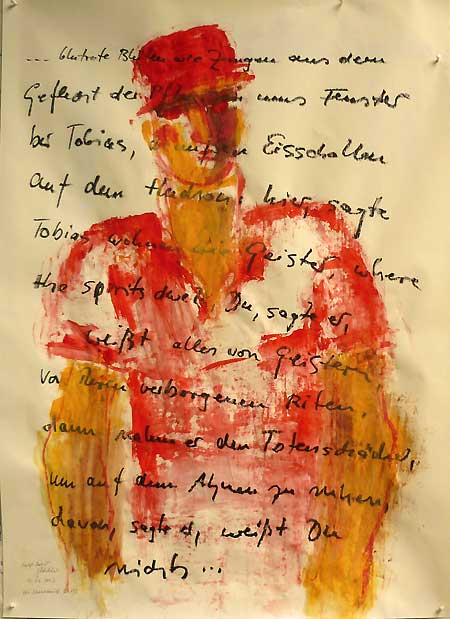 ... blutrote Blüten wie Zungen aus dem
Geflecht der ums Fenster
bei Tobias, Eisschollen
auf dem Hudson. hier, sagte
Tobias, wohnen die Geister where
the spirits dwell. Du, sagte er,
weißt alles von Geistern
von ihren verborgenen Riten,
dann nahm er den Totenschädel,
um auf den Ahnen zu ruhen,
davon, sagte er, weißt Du
nichts ...